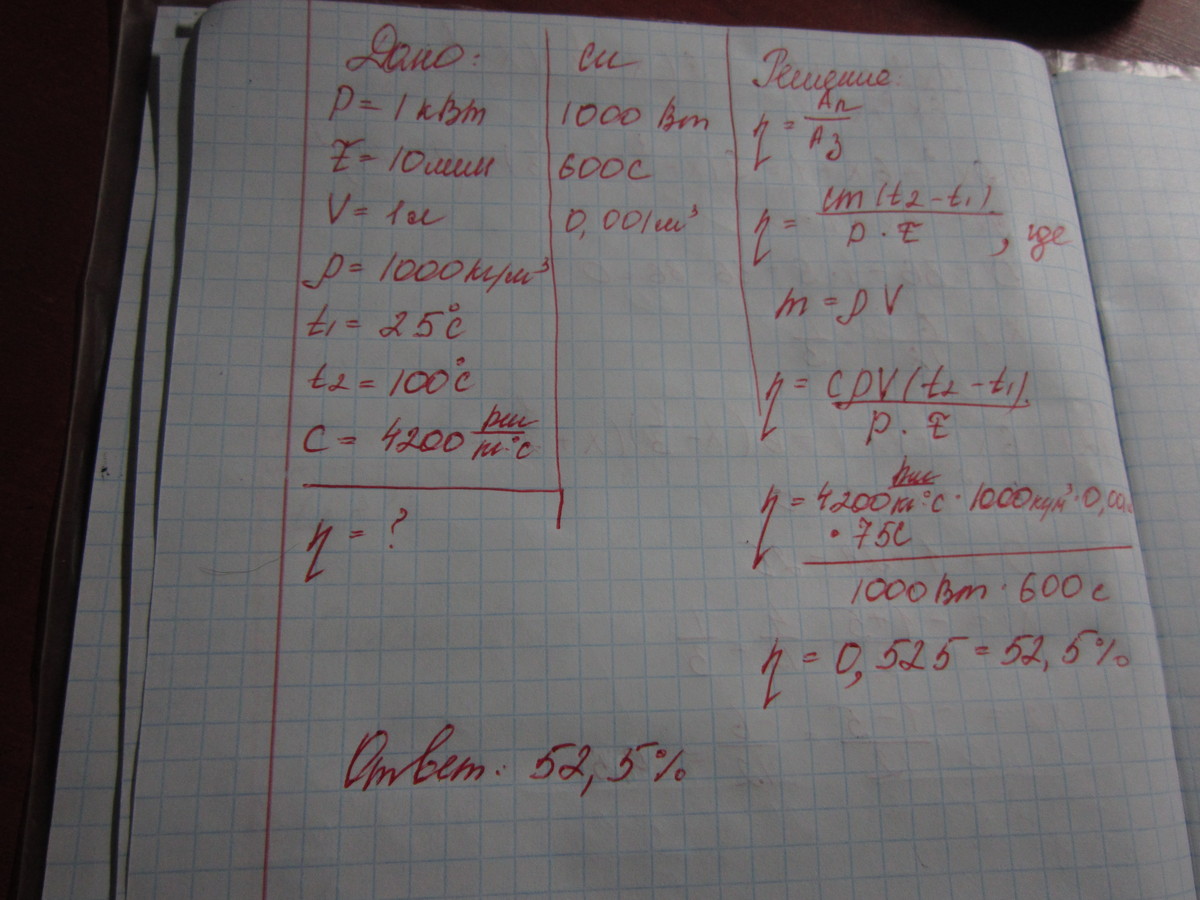 Дано:
P = 1 кВт
τ = 10 мин
V = 1 л
ρ = 1000 кг/м³
t₁ = 25°C
t₂ = 100°C
c = 4200 Дж/кг·°C
η = ?
СИ
1000 Вт
600 с
0,001 м³
Решение:
η = Aп/Aз
η = cm(t₂ - t₁)/P · τ, где
m = ρV
η = cρV(t₂ - t₁)/P · τ
η = 4200 Дж/кг·°C · 1000 кг/м³ · 0,001
· 75C
1000 Вт · 600 с
η = 0,525 = 52,5%
Ответ: 52,5%